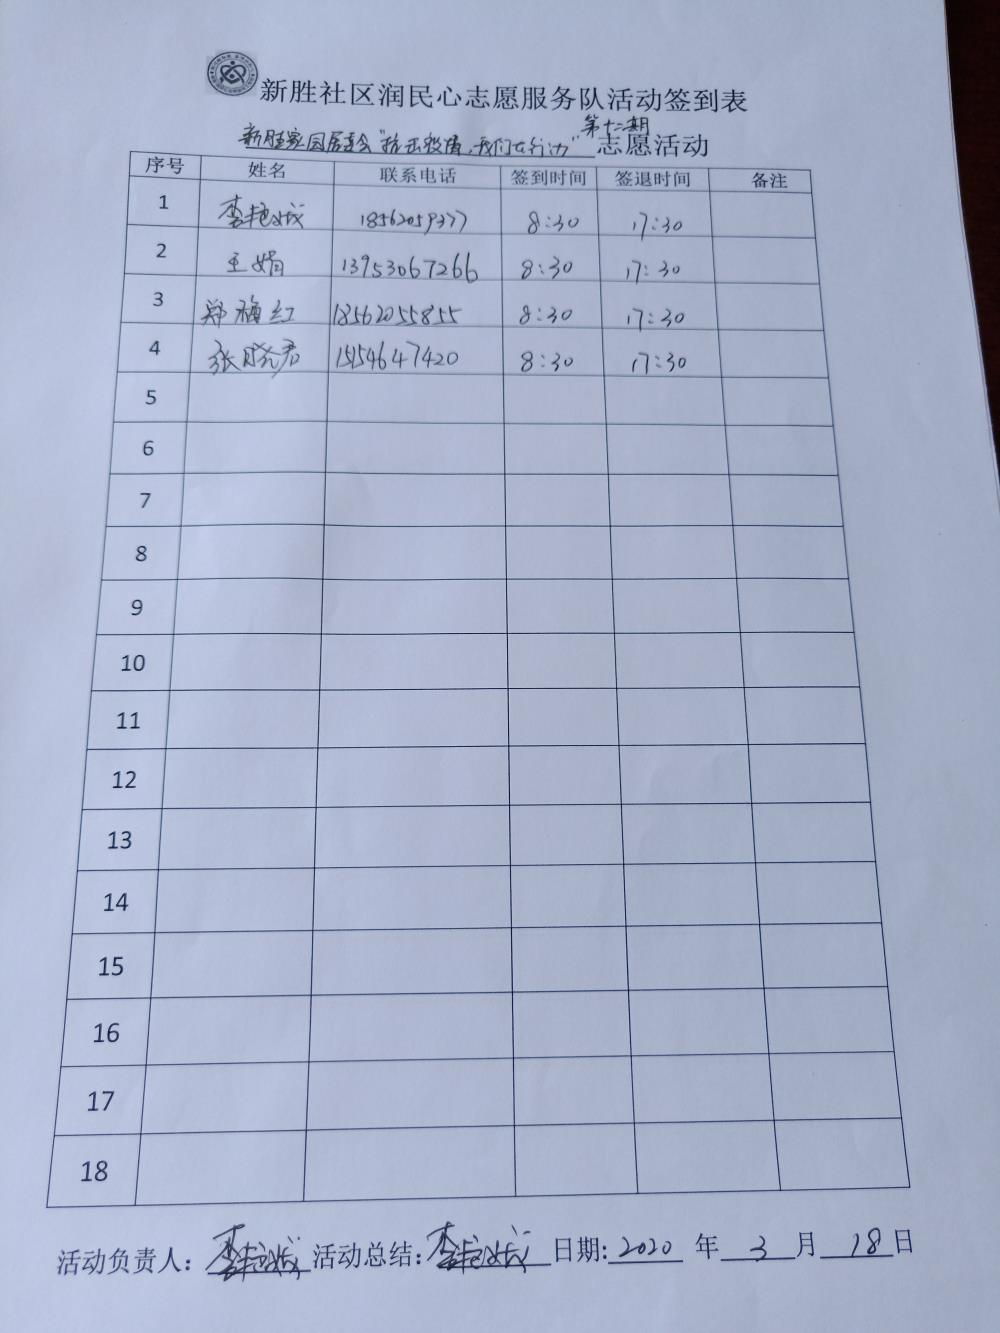 新胜社区润民心志愿服务队活动签到表
第十二期
新胜家园居委会“抗击疫情,我们在行动”志愿活动
序号 姓名 联系电话 签到时间 签退时间 备注
1 李艳斌 18562059377 8:30 17:30
2 王娟 13953067266 8:30 17:30
3 郑梅红 18562055855 8:30 17:30
4 张晓君 15154647420 8:30 17:30
5
6
7
8
9
10
11
12
13
14
15
16
17
18
活动负责人: 活动总结: 日期: 2020 年 3 月 18 日